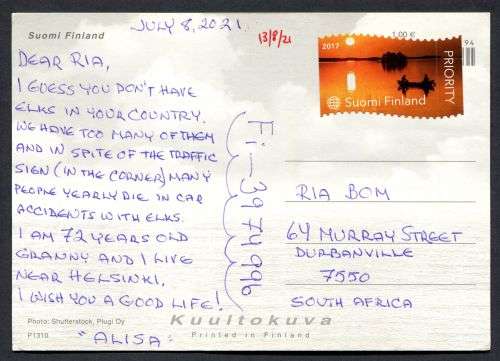 Suomi Finland
JULY 8, 2021
13/8/21
DEAR RIA,
I GUESS YOU DON'T HAVE
ELKS IN YOUR COUNTRY.
WE HAVE TOO MANY OF THEM
AND IN SPITE OF THE TRAFFIC
SIGN (IN THE CORNER) MANY
PEOPLE YEARLY DIE IN CAR
ACCIDENTS WITH ELKS.
I AM 72 YEARS OLD
GRANNY AND I LIVE
NEAR HELSINKI.
I WISH YOU A GOOD LIFE!
"ALISA"
Fi-3974996
2017
1,00 €
94
PRIORITY
Suomi Finland
RIA BOM
64 MURRAY STREET
DURBANVILLE
7550
SOUTH AFRICA
Photo: Shutterstock, Plugi Oy
P1310
Kuultokuva
Printed in Finland